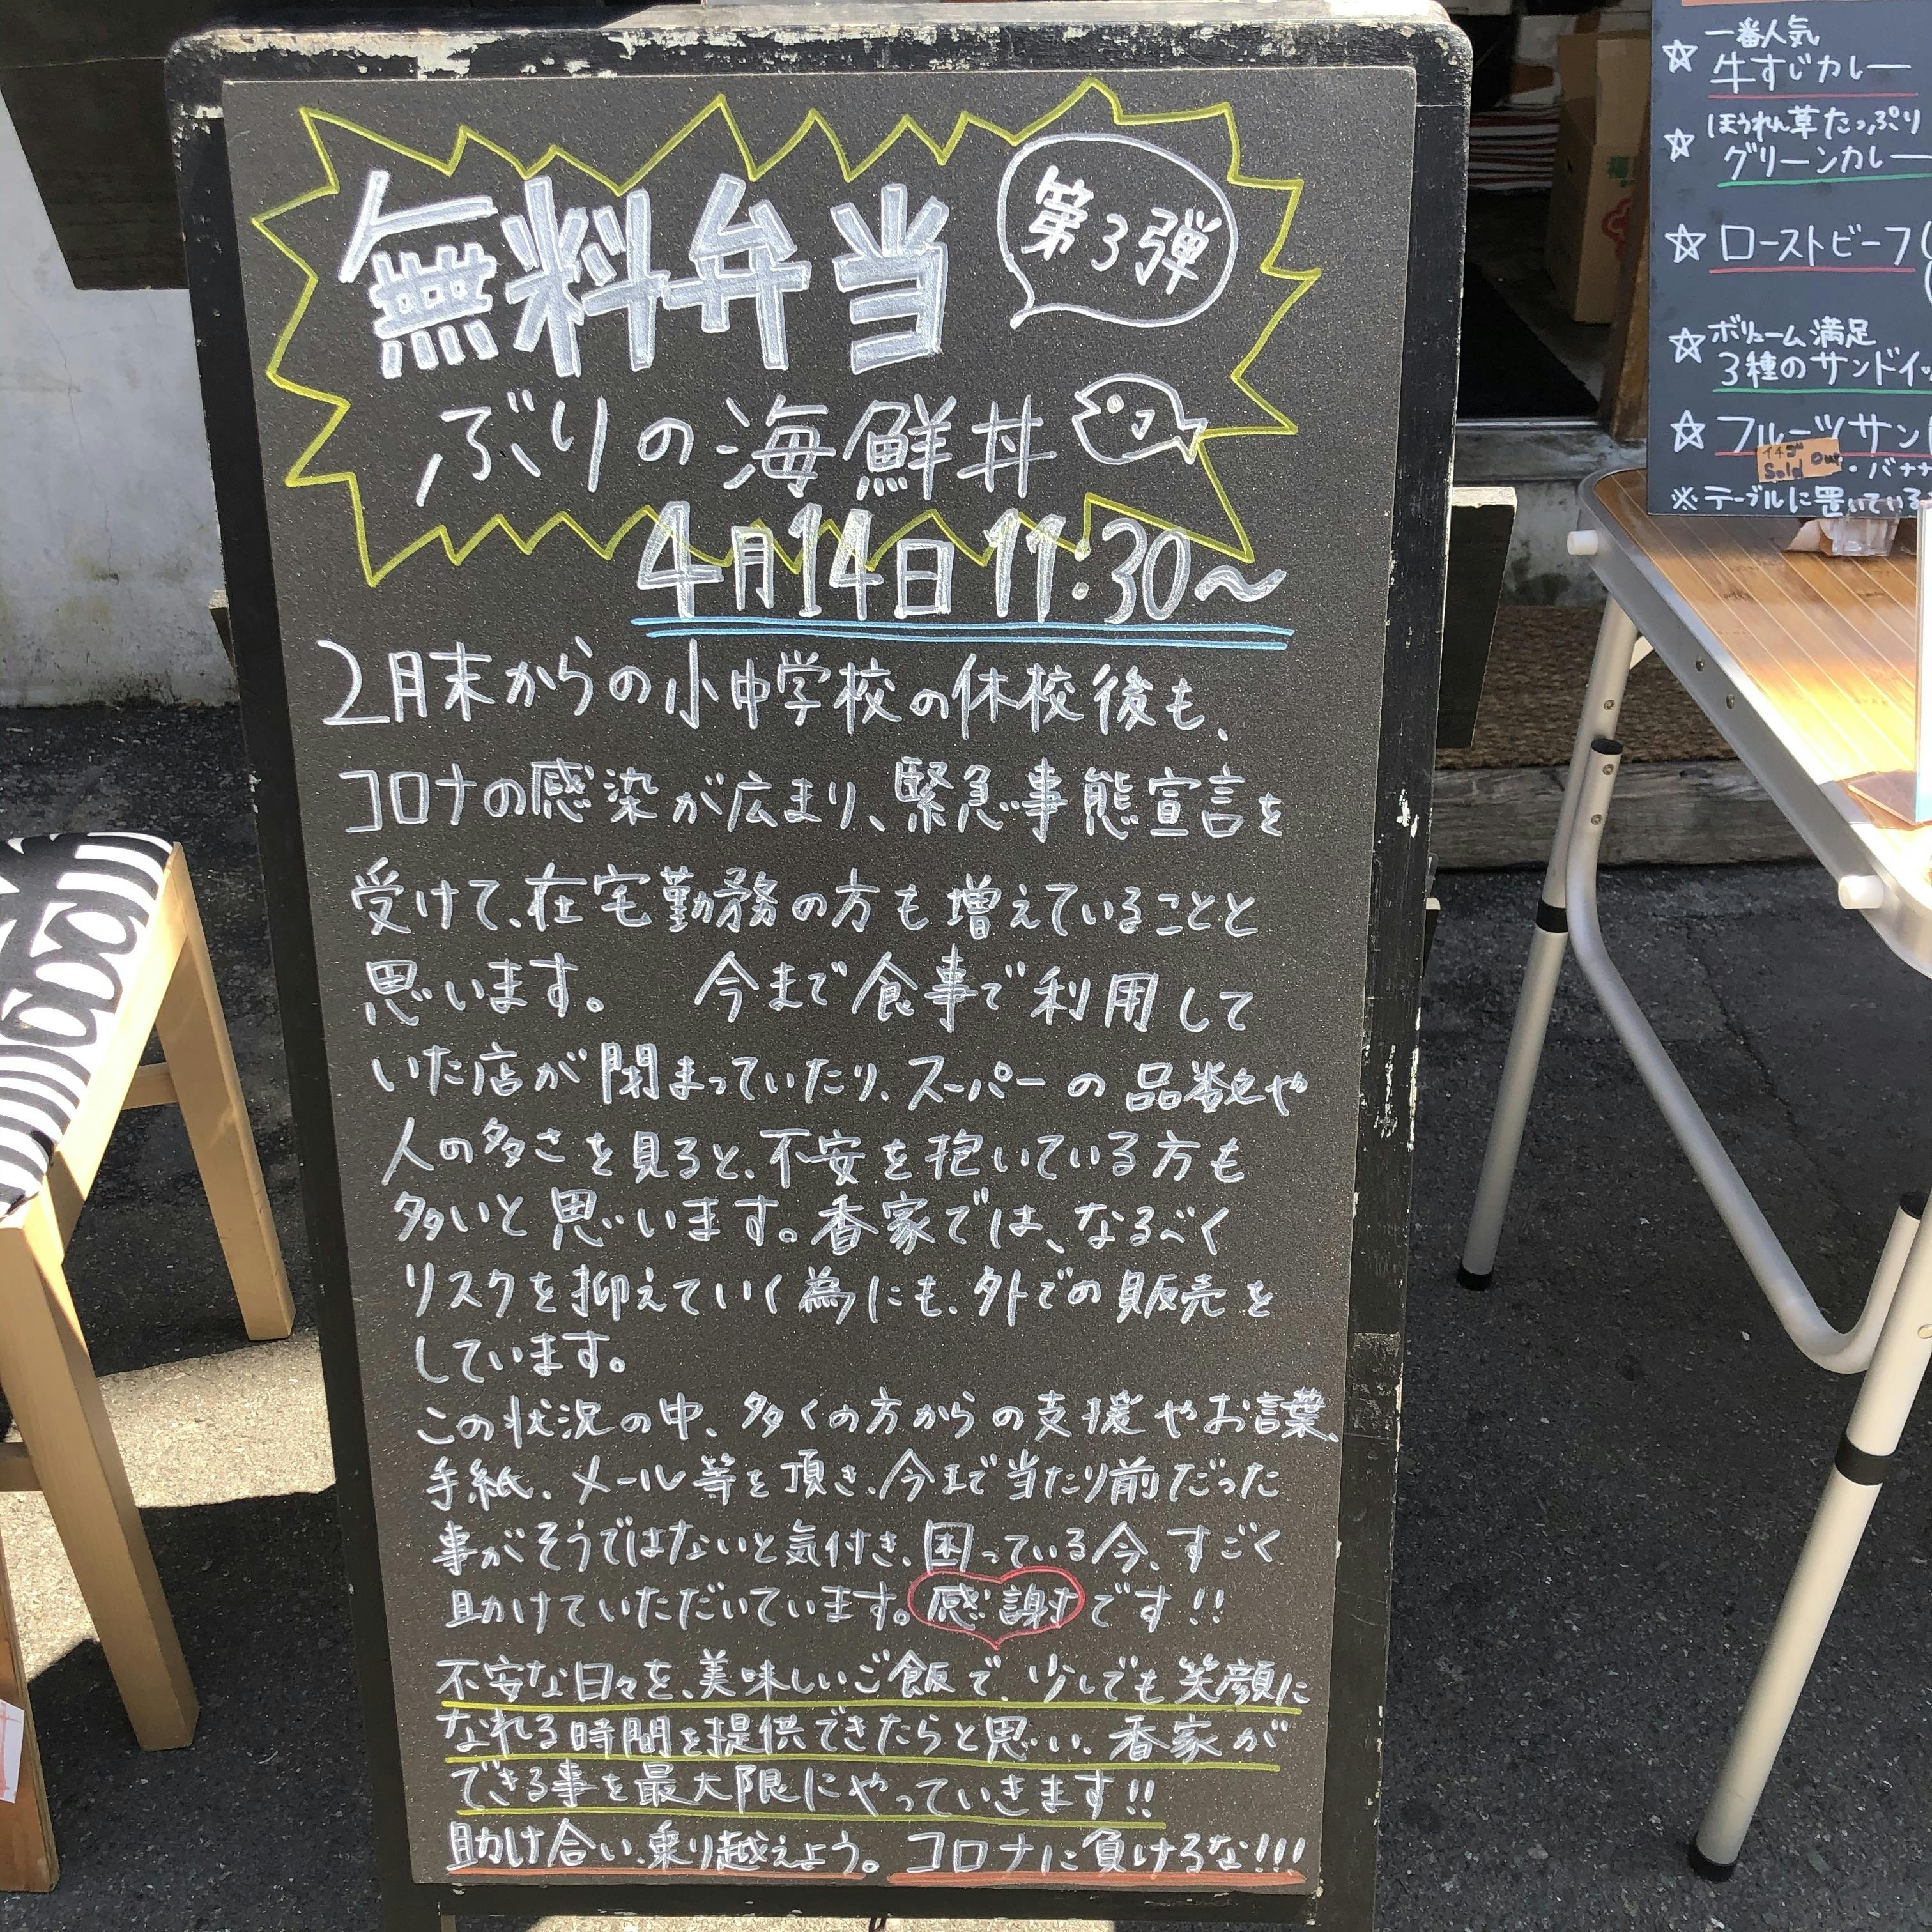 無料弁当 第3弾
ぶりの海鮮丼
4月14日 11:30〜
2月末からの小中学校の休校後も、
コロナの感染が広まり、緊急事態宣言を
受けて、在宅勤務の方も増えていることと
思います。 今まで食事で利用して
いた店が閉まっていたり、スーパーの品数や
人の多さを見ると、不安を抱いている方も
多いと思います。香家では、なるべく
リスクを抑えていく為にも、外での販売を
しています。
この状況の中、多くの方からの支援やお言葉、
手紙、メール等を頂き、今まで当たり前だった
事がそうではないと気付き、困っている今、すごく
助けていただいています。感謝です!!
不安な日々を、美味しいご飯で、少しでも笑顔に
なれる時間を提供できたらと思い、香家が
できる事を最大限にやっていきます!!
助け合い、乗り越えよう。コロナに負けるな!!!
一番人気
☆ 牛すじカレー
ほうれん草たっぷり
☆ グリーンカレー
☆ ローストビーフ
ボリューム満足
☆ 3種のサンドイッ
☆ フルーツサン
イチゴ
Sold Out ・バナナ
※テーブルに置いている